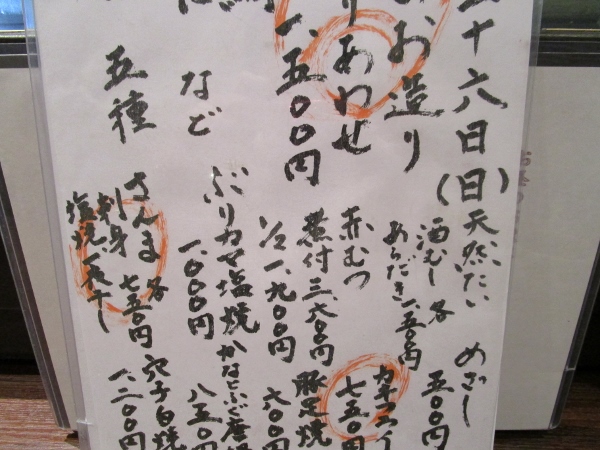 十六日(日)
お造り
りあわせ
一、五〇〇円
など
五種
天然だい
酒むし
あらだき
各
一、一五〇円
赤むつ
煮付 三、六〇〇円
1/2 一、九〇〇円
ぶりカマ塩焼
一、〇〇〇円
さんま
刺身
塩焼
一夜干し
各
七五〇円
めざし
五〇〇円
カキフライ
七五〇円
豚足焼
六〇〇円
かなとふぐ唐揚
八五〇円
穴子白焼
一、二〇〇円